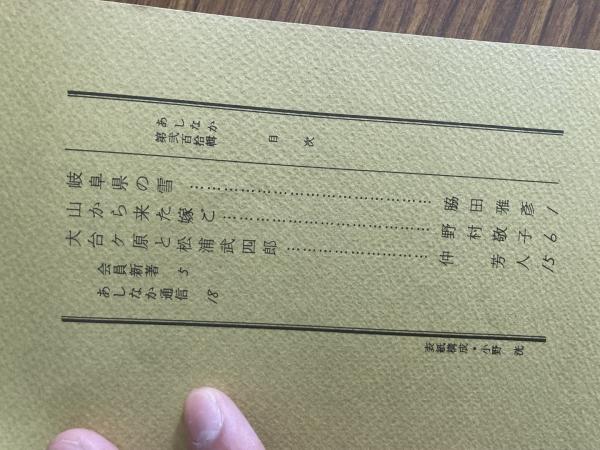 あしなか
第弐百拾輯
目次
岐阜県の雪 脇田雅彦 1
山から来た嫁ど 野村敬子 6
大台ケ原と松浦武四郎 仲芳人 15
会員新著 5
あしなか通信 18
表紙構成・小野洸